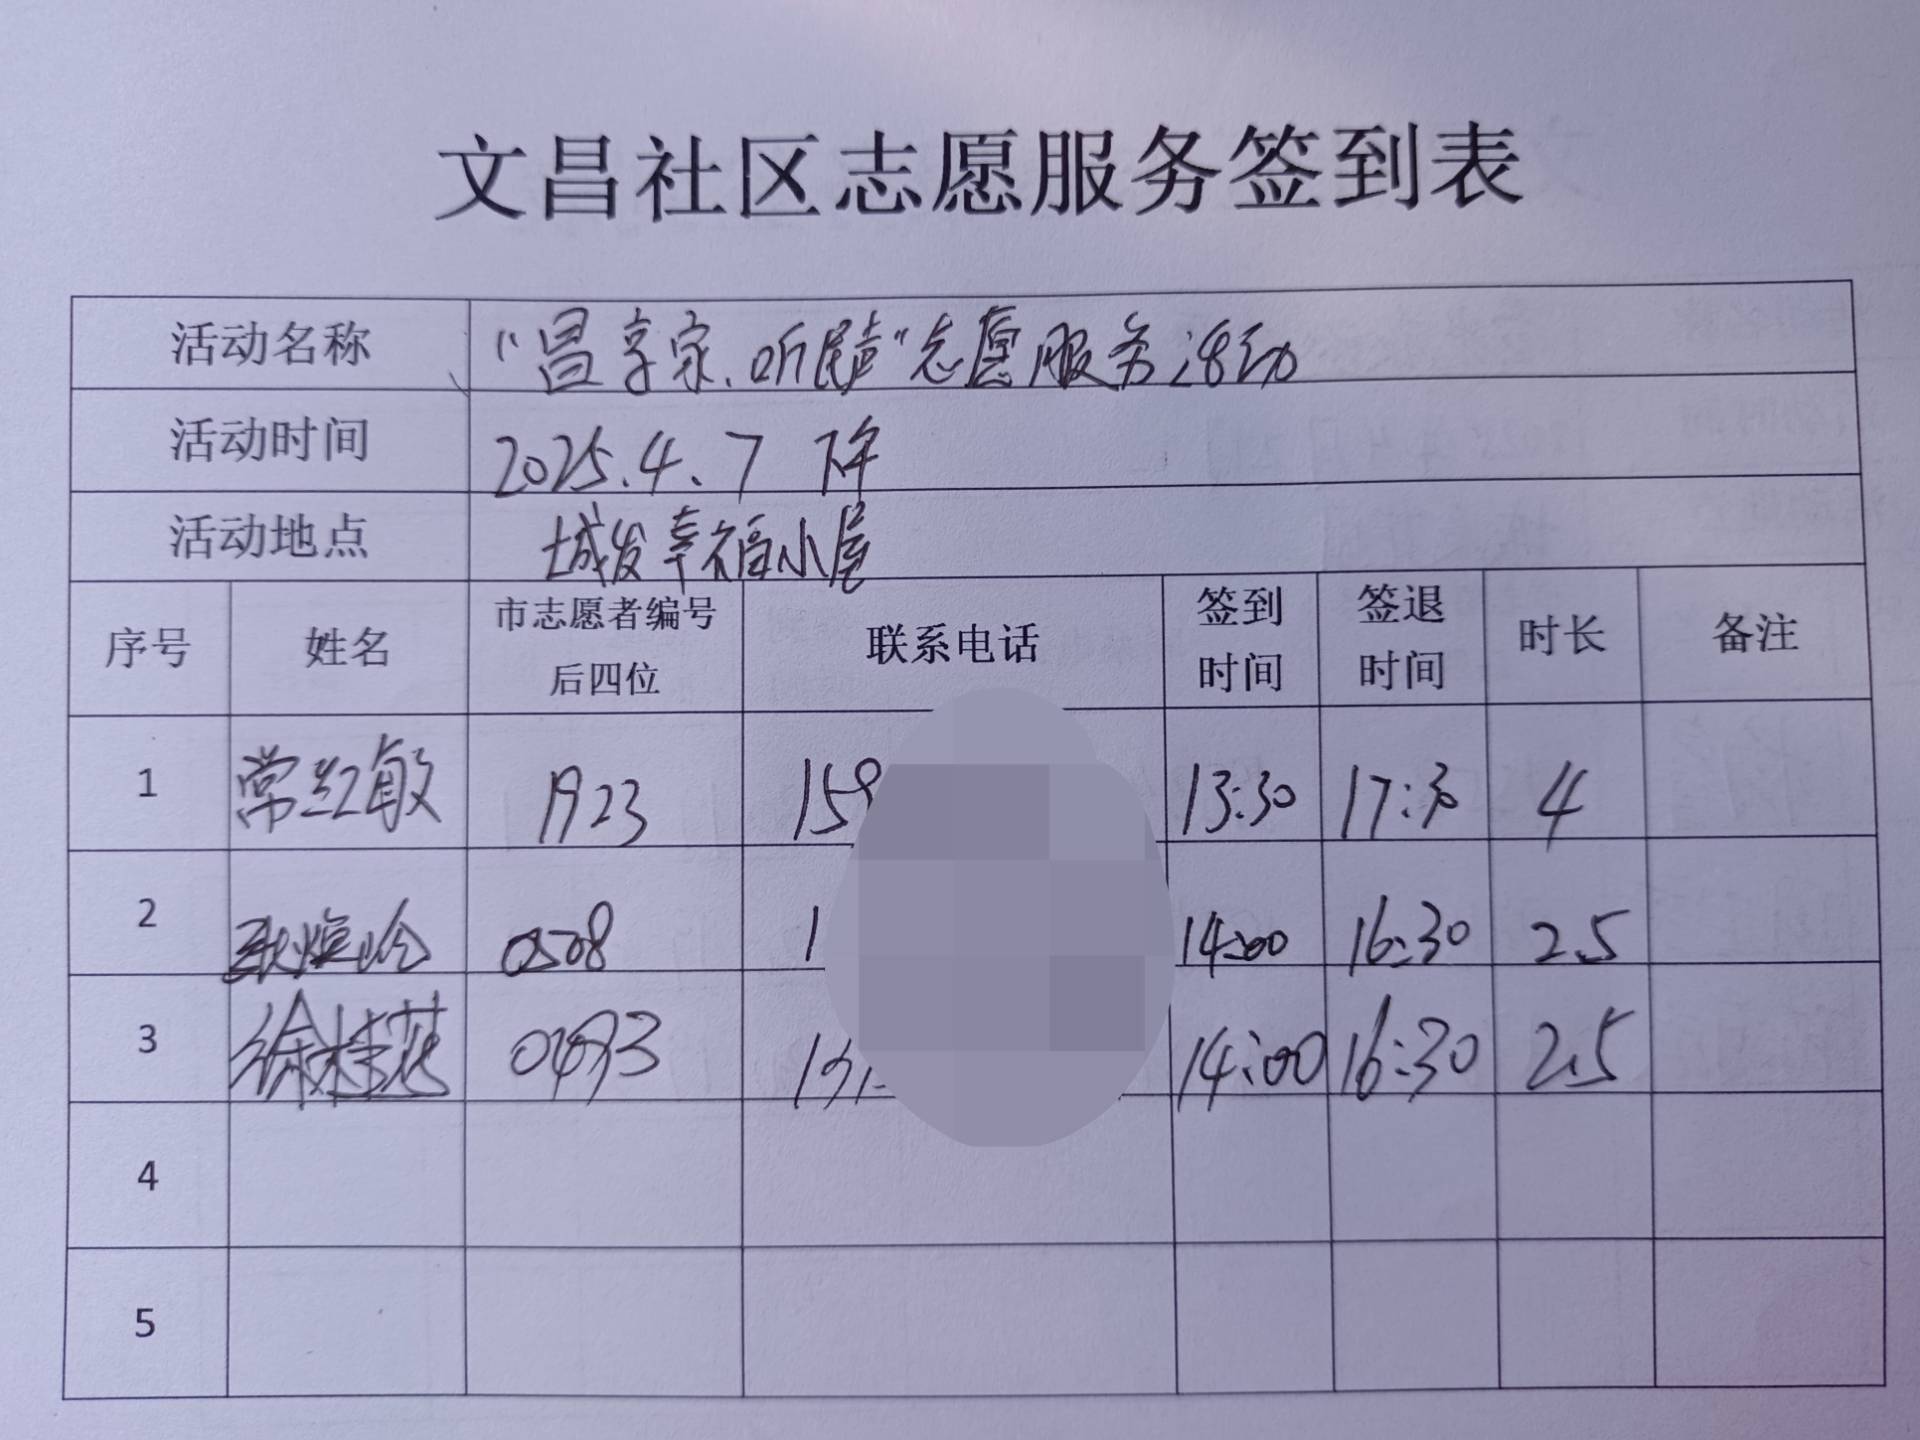 文昌社区志愿服务签到表
活动名称 "昌享家、听民声"志愿服务活动
活动时间 2025.4.7 下午
活动地点 城发幸福小屋
序号 姓名 市志愿者编号后四位 联系电话 签到时间 签退时间 时长 备注
1 常红敏 1923 159 13:30 17:30 4
2 0508 1 14:00 16:30 2.5
3 徐桂花 0493 14:00 16:30 2.5
4
5